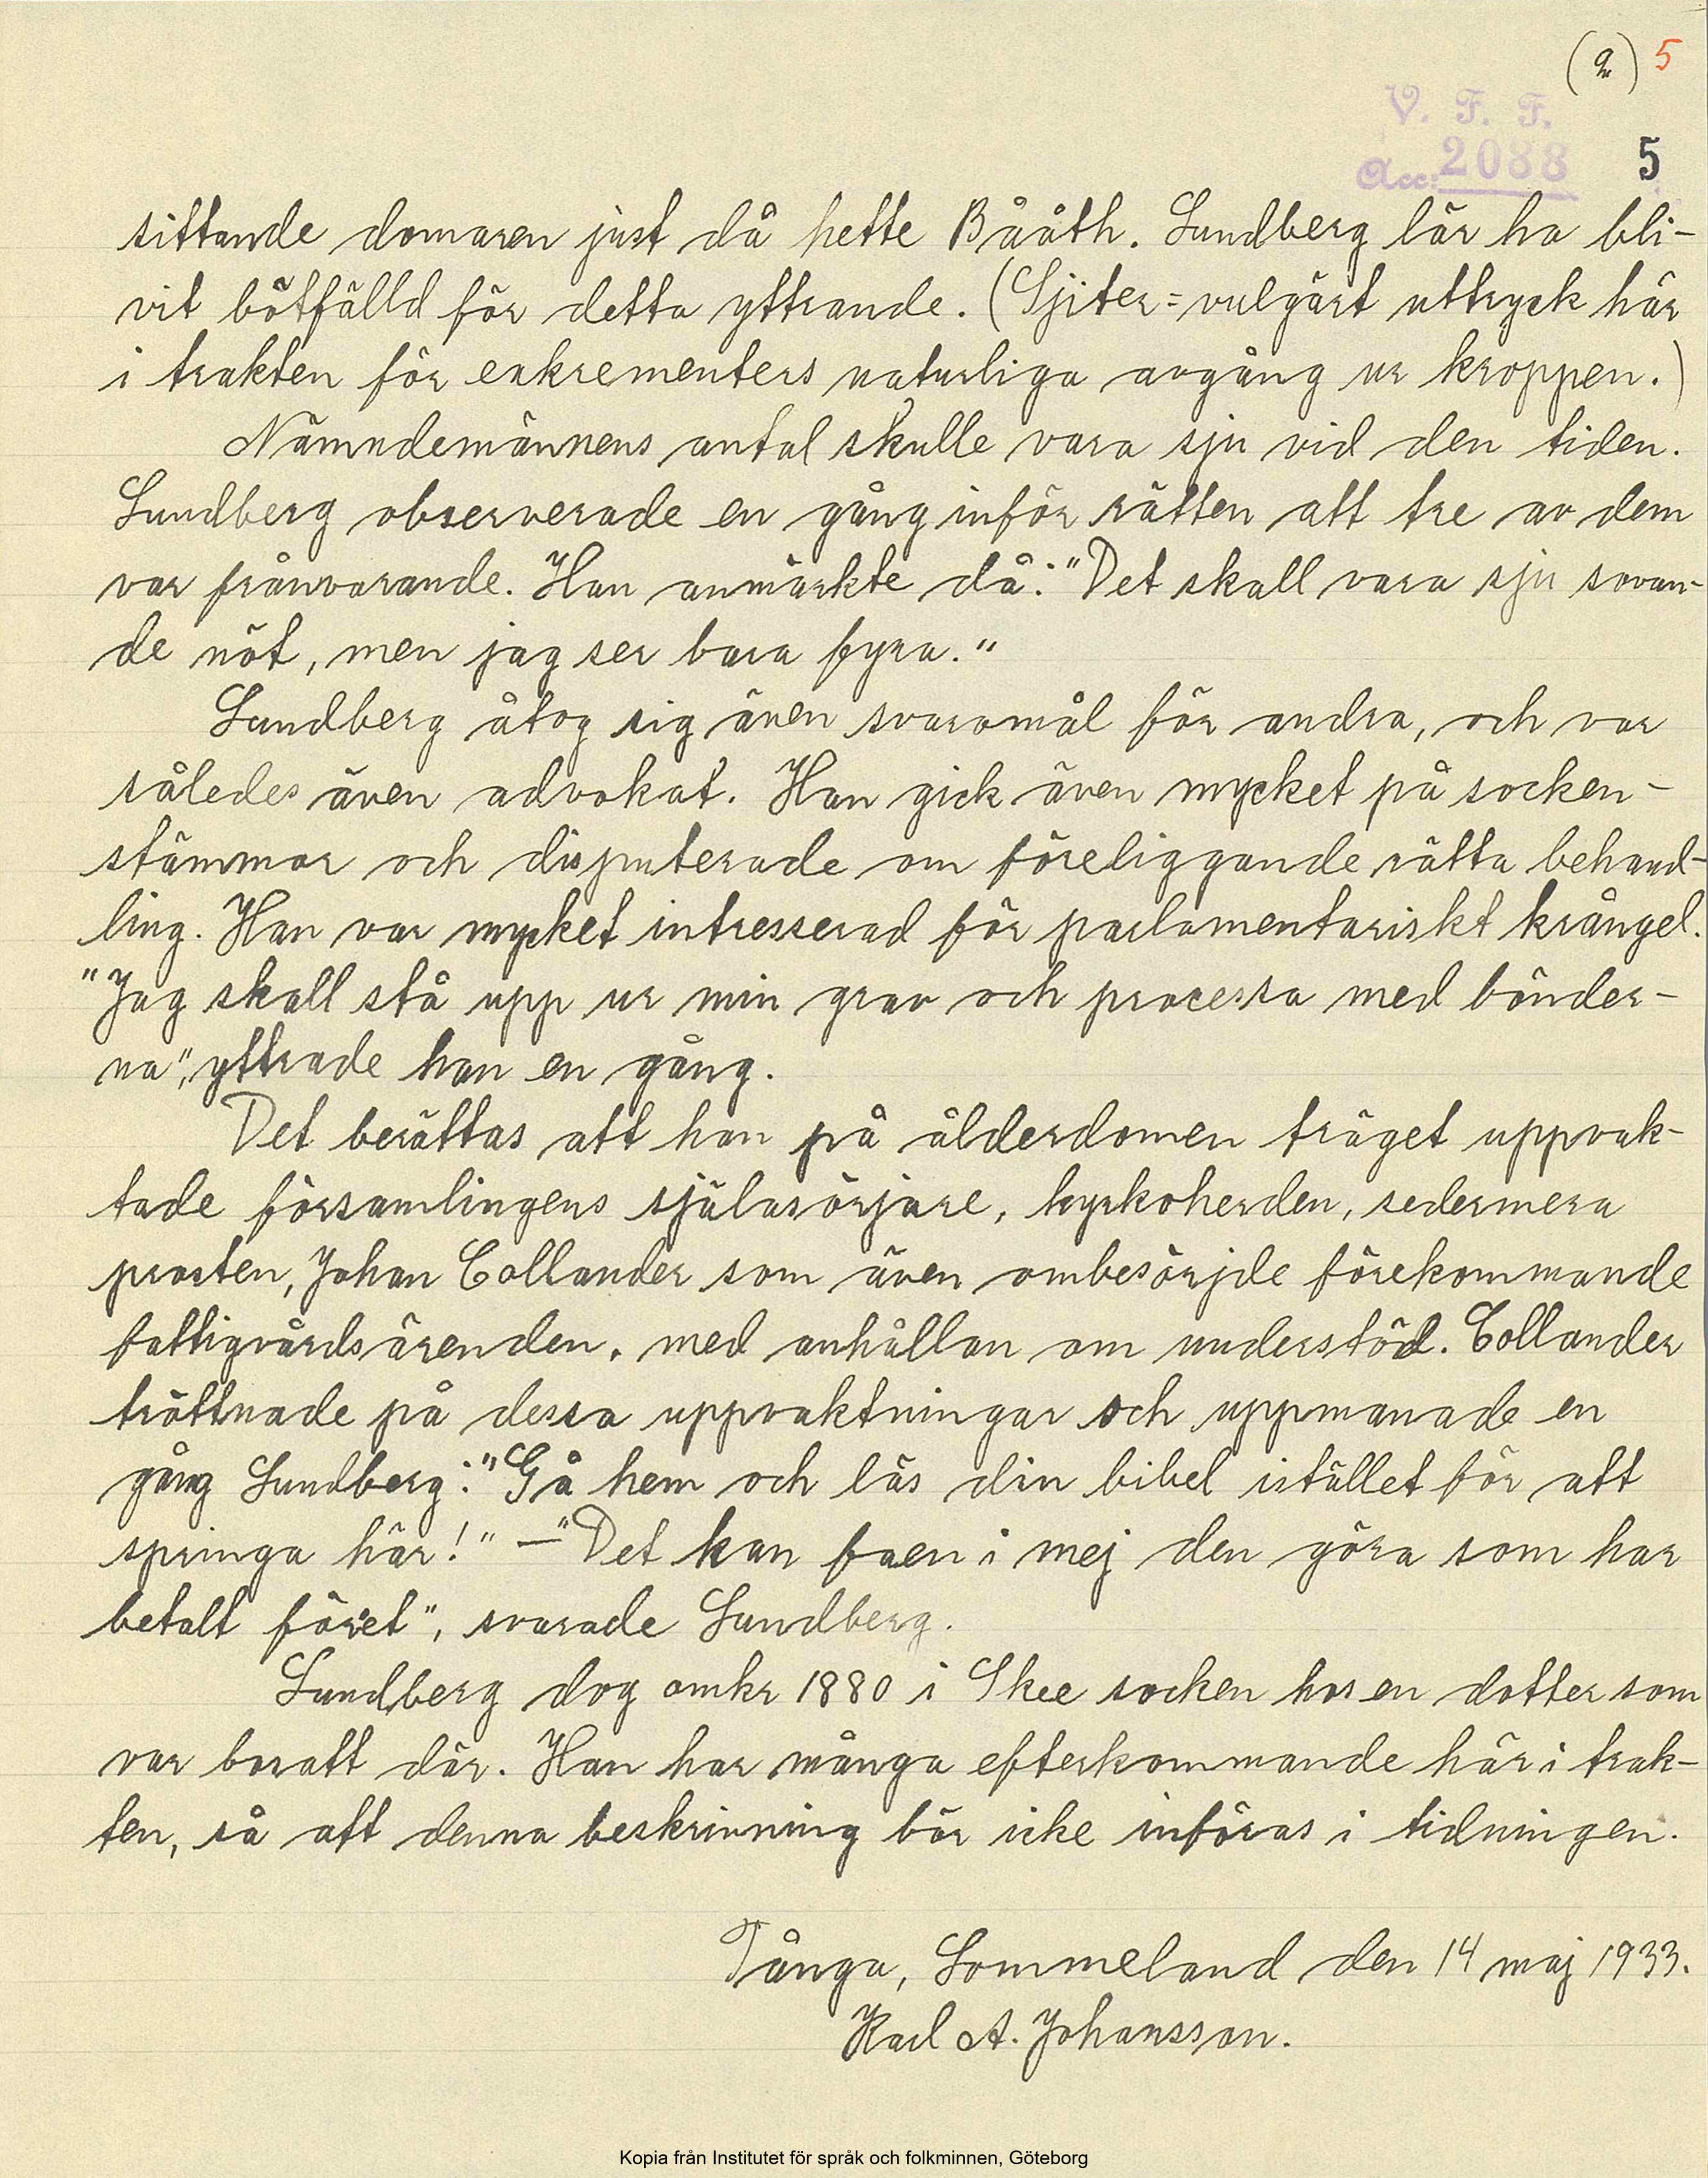 (2) 5
V. F. F.
Acc: 2088 5
sittande domaren just då hette Bååth. Lundberg lär ha bli-
vit bötfälld för detta yttrande. (Sjiter = vulgärt uttryck här
i trakten för exkrementers naturliga avgång ur kroppen.)
Nämndemännens antal skulle vara sju vid den tiden.
Lundberg observerade en gång inför rätten att tre av dem
var frånvarande. Han anmärkte då: "Det skall vara sju sovan-
de nöt, men jag ser bara fyra."
Lundberg åtog sig även svaromål för andra, och var
således även advokat. Han gick även mycket på socken-
stämmor och disputerade om föreliggande rätta behand-
ling. Han var mycket intresserad för parlamentariskt krångel.
"Jag skall stå upp ur min grav och processa med bönder-
na", yttrade han en gång.
Det berättas att han på ålderdomen träget uppvak-
tade församlingens själasörjare, kyrkoherden, sedermera
prosten, Johan Collander som även ombesörjde förekommande
fattigvårdsärenden, med anhållan om understöd. Collander
tröttnade på dessa uppvaktningar och uppmanade en
gång Lundberg: "Gå hem och läs din bibel istället för att
springa här!" – "Det kan faen i mej den göra som har
betalt för'et", svarade Lundberg.
Lundberg dog omkr 1880 i Skee socken hos en dotter som
var bosatt där. Han har många efterkommande här i trak-
ten, så att denna beskrivning bör icke införas i tidningen.
Tånga, Lommeland den 14 maj 1933.
Karl A. Johansson.
Kopia från Institutet för språk och folkminnen, Göteborg